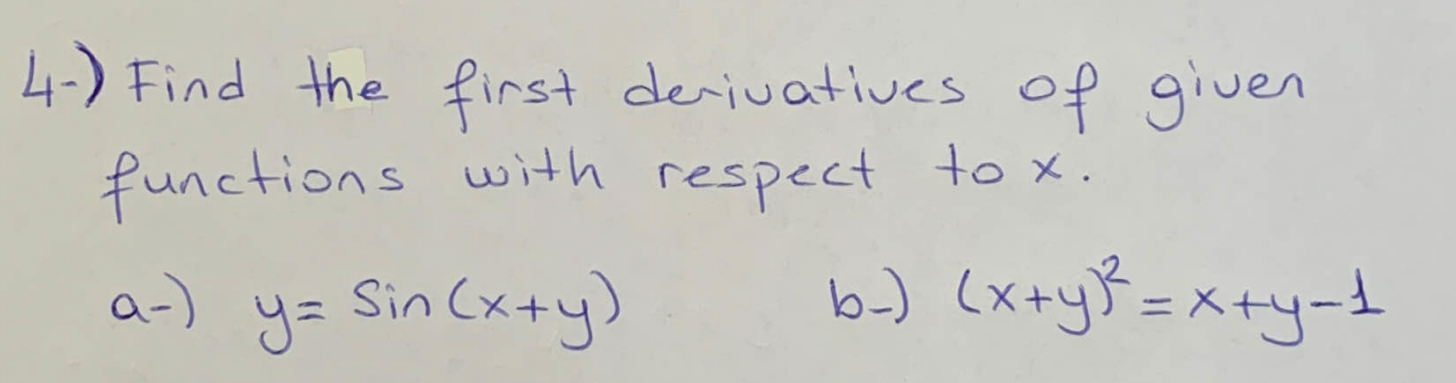 4-) Find the first derivatives of given
functions with respect to x.
a-) y= Sin(x+y) b-) (x+y)²=x+y-1